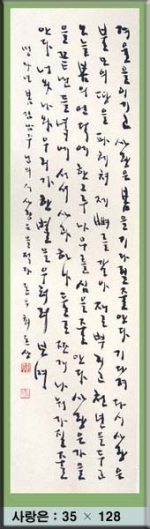 겨울을 이기고 사랑은 봄을 기다릴줄안다 기다려 다시 사랑은
불모의 땅을 파헤쳐 제 뼈를 갈아 재로 뿌리고 천년을 두고
오늘 봄의 언덕에 한그루 나무를 심을줄 안다 사랑은 가을
을 끝낸 들녘에 서서 사과 하나 둘로 쪼개 나눠 가질줄
안다 너와 나와 우리가 한별을 우러러 보며
사랑은 : 35 × 128